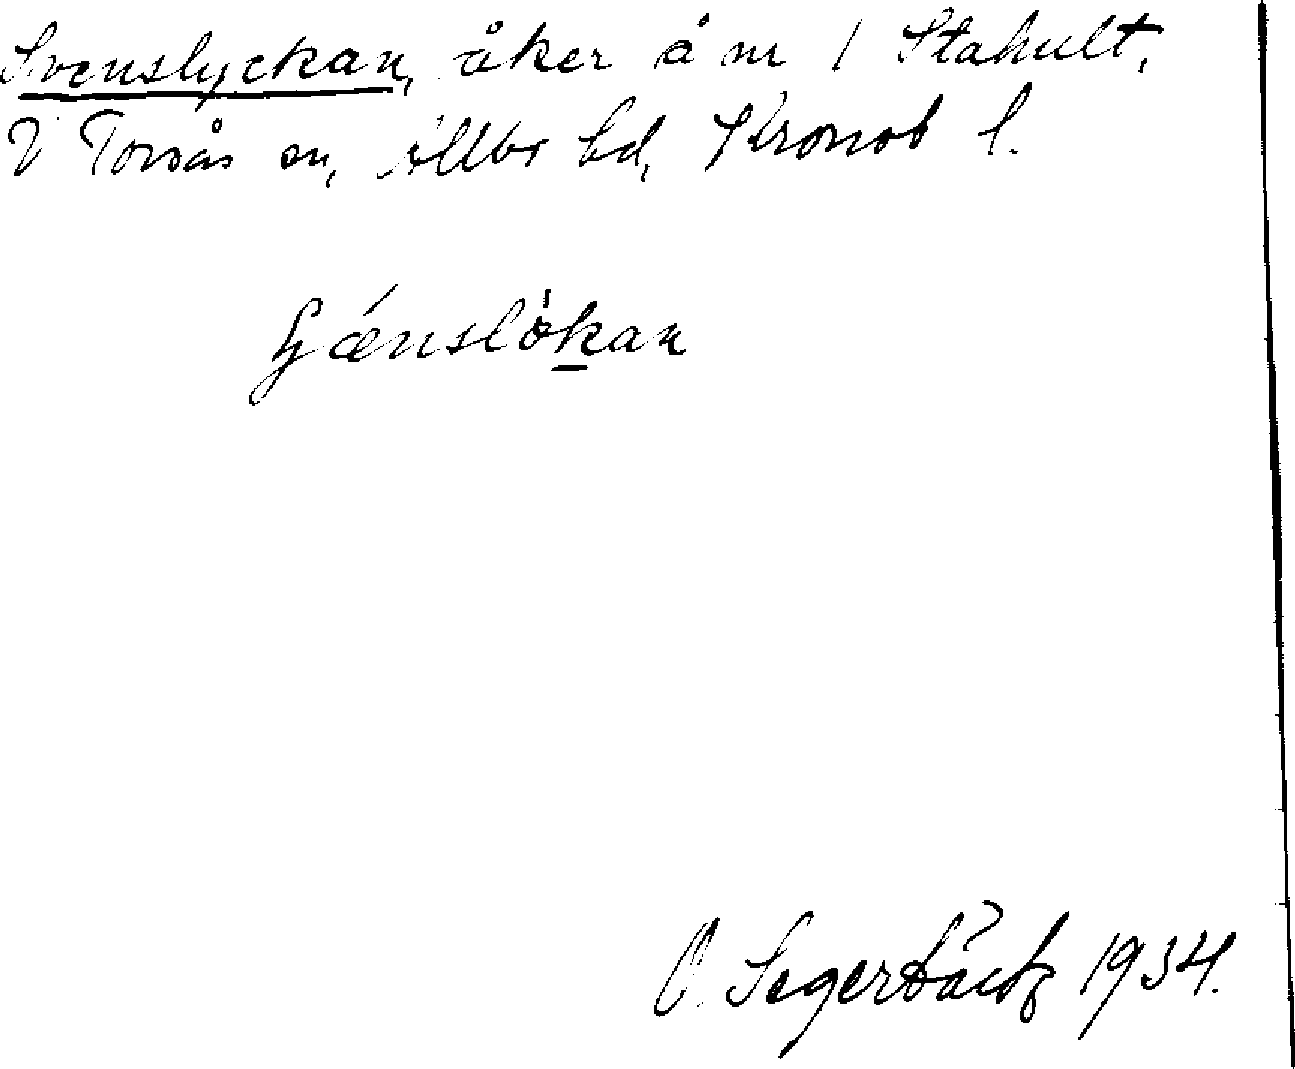 Svenslyckan, åker å nr 1 Stahult,
V Torsås sn, Allbo hd, Kronob l.
O. Segerbäck 1934.